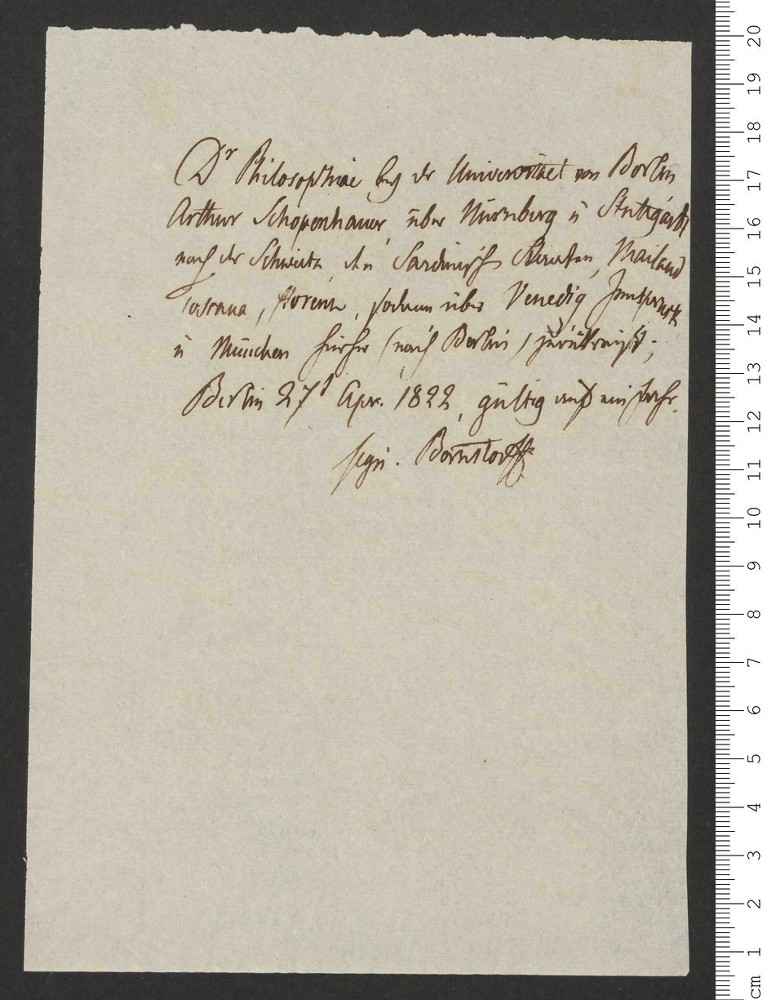 Dr Philosophiae bey der Universitaet von Berlin
Arthur Schopenhauer, über Nürnberg u Stuttgardt
nach der Schweitz, den Sardinisch Staaten, Mailand
Toscana, Florenz, sodann über Venedig
u München hierher (nach Berlin) zurückreist;
Berlin 27t Apr. 1822, gültig auf ein Jahr.
sign. Bernstorff
20
19
18
17
16
15
14
13
12
11
10
9
8
7
6
5
4
3
2
1
cm